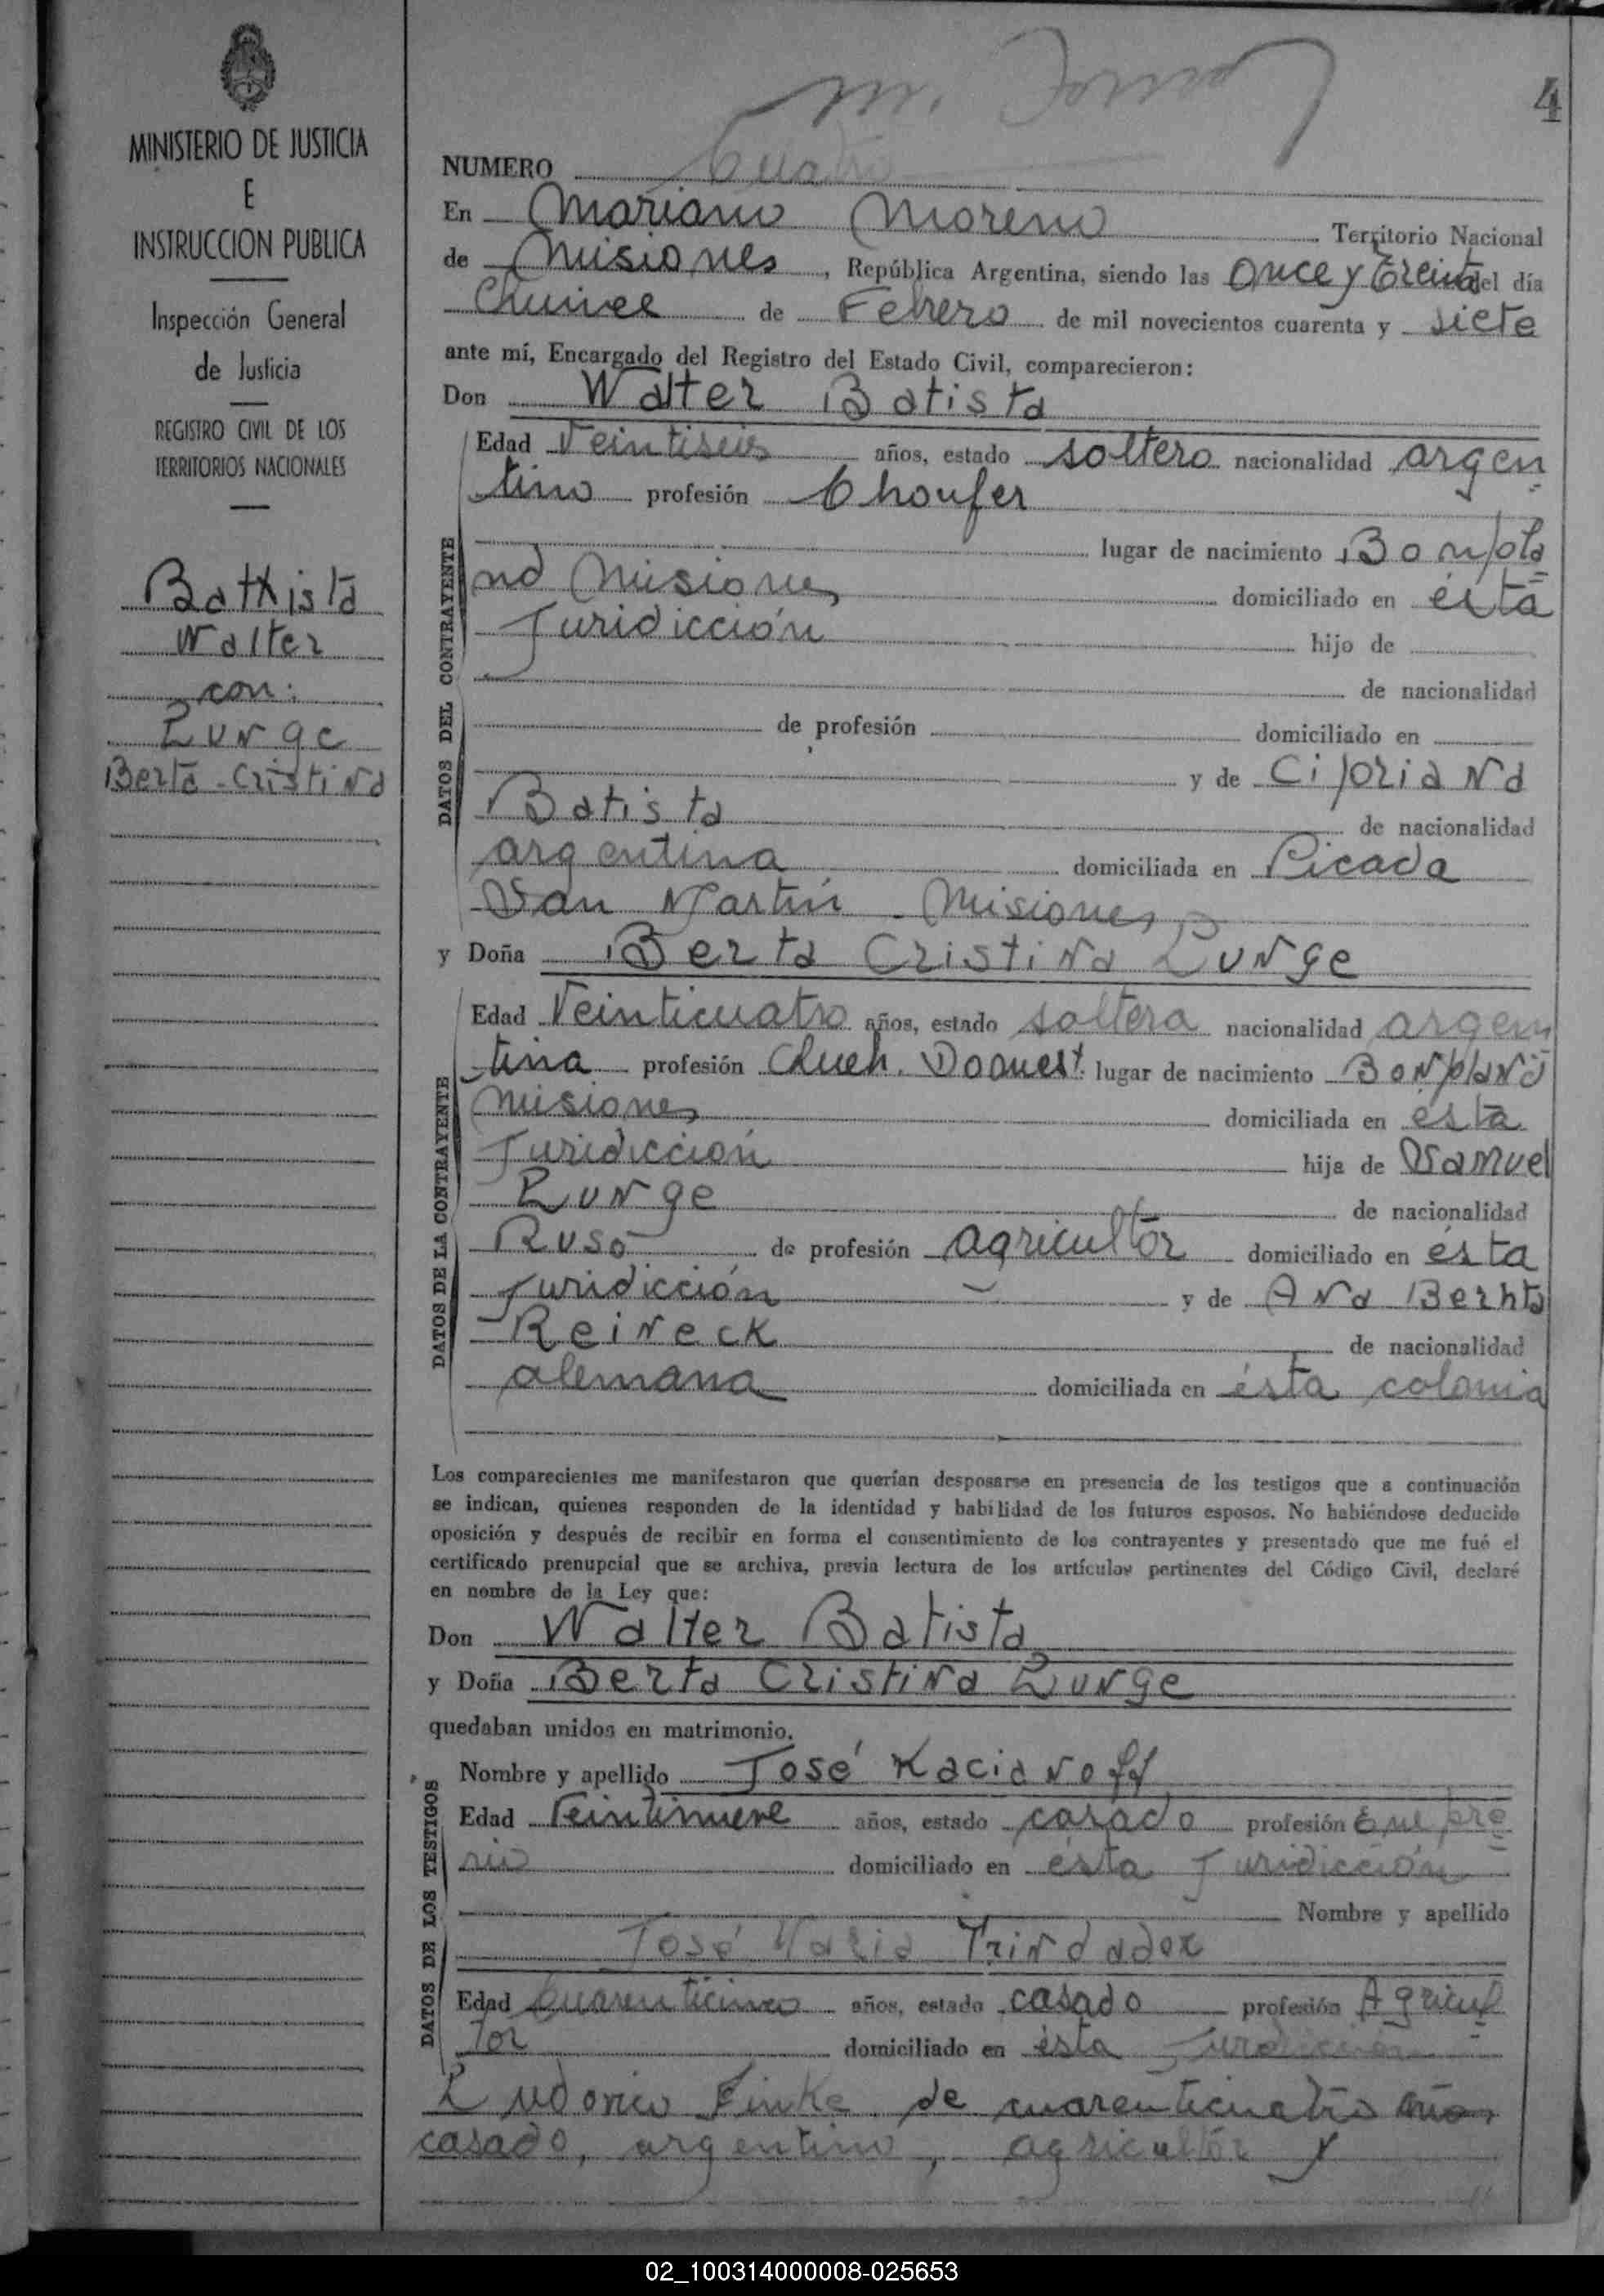 4
MINISTERIO DE JUSTICIA
E
INSTRUCCION PUBLICA
Inspección General
de Justicia
REGISTRO CIVIL DE LOS
TERRITORIOS NACIONALES
Batxista
Walter
con:
Lunge
Berta-Cristina
NUMERO Cuatro
En Mariano Moreno Territorio Nacional
de Misiones, República Argentina, siendo las once y treinta del día
Quince de Febrero de mil novecientos cuarenta y siete
ante mí, Encargado del Registro del Estado Civil, comparecieron:
Don Walter Batista
DATOS DEL CONTRAYENTE
Edad Veintiseis años, estado soltero nacionalidad argen=
tino profesión Choufer
lugar de nacimiento Bonpla=
nd Misiones domiciliado en ésta
Juridicción hijo de
de nacionalidad
de profesión domiciliado en
y de Cipriana
Batista de nacionalidad
argentina domiciliada en Picada
San Martín Misiones
y Doña Berta Cristina Lunge
DATOS DE LA CONTRAYENTE
Edad Veinticuatro años, estado soltera nacionalidad argen=
tina profesión Queh. Domest. lugar de nacimiento Bonpland
Misiones domiciliada en ésta
Juridicción hija de Samuel
Lunge de nacionalidad
Ruso de profesión agricultor domiciliado en ésta
Juridicción y de Ana Berhta
Reineck de nacionalidad
alemana domiciliada en ésta colonia
Los comparecientes me manifestaron que querían desposarse en presencia de los testigos que a continuación
se indican, quienes responden de la identidad y habilidad de los futuros esposos. No habiéndose deducido
oposición y después de recibir en forma el consentimiento de los contrayentes y presentado que me fué el
certificado prenupcial que se archiva, previa lectura de los artículos pertinentes del Código Civil, declaré
en nombre de la Ley que:
Don Walter Batista
y Doña Berta Cristina Lunge
quedaban unidos en matrimonio.
DATOS DE LOS TESTIGOS
Nombre y apellido José Kacianoff
Edad Veintinueve años, estado casado profesión Empre=
rio domiciliado en ésta Juridicción
Nombre y apellido
José Maria Trindadex
Edad Cuarenticinco años, estado casado profesión Agricul=
tor domiciliado en ésta Juridicción
Ludovico Finke de cuarenticuatro años
casado, argentino, agricultor y
02_100314000008-025653